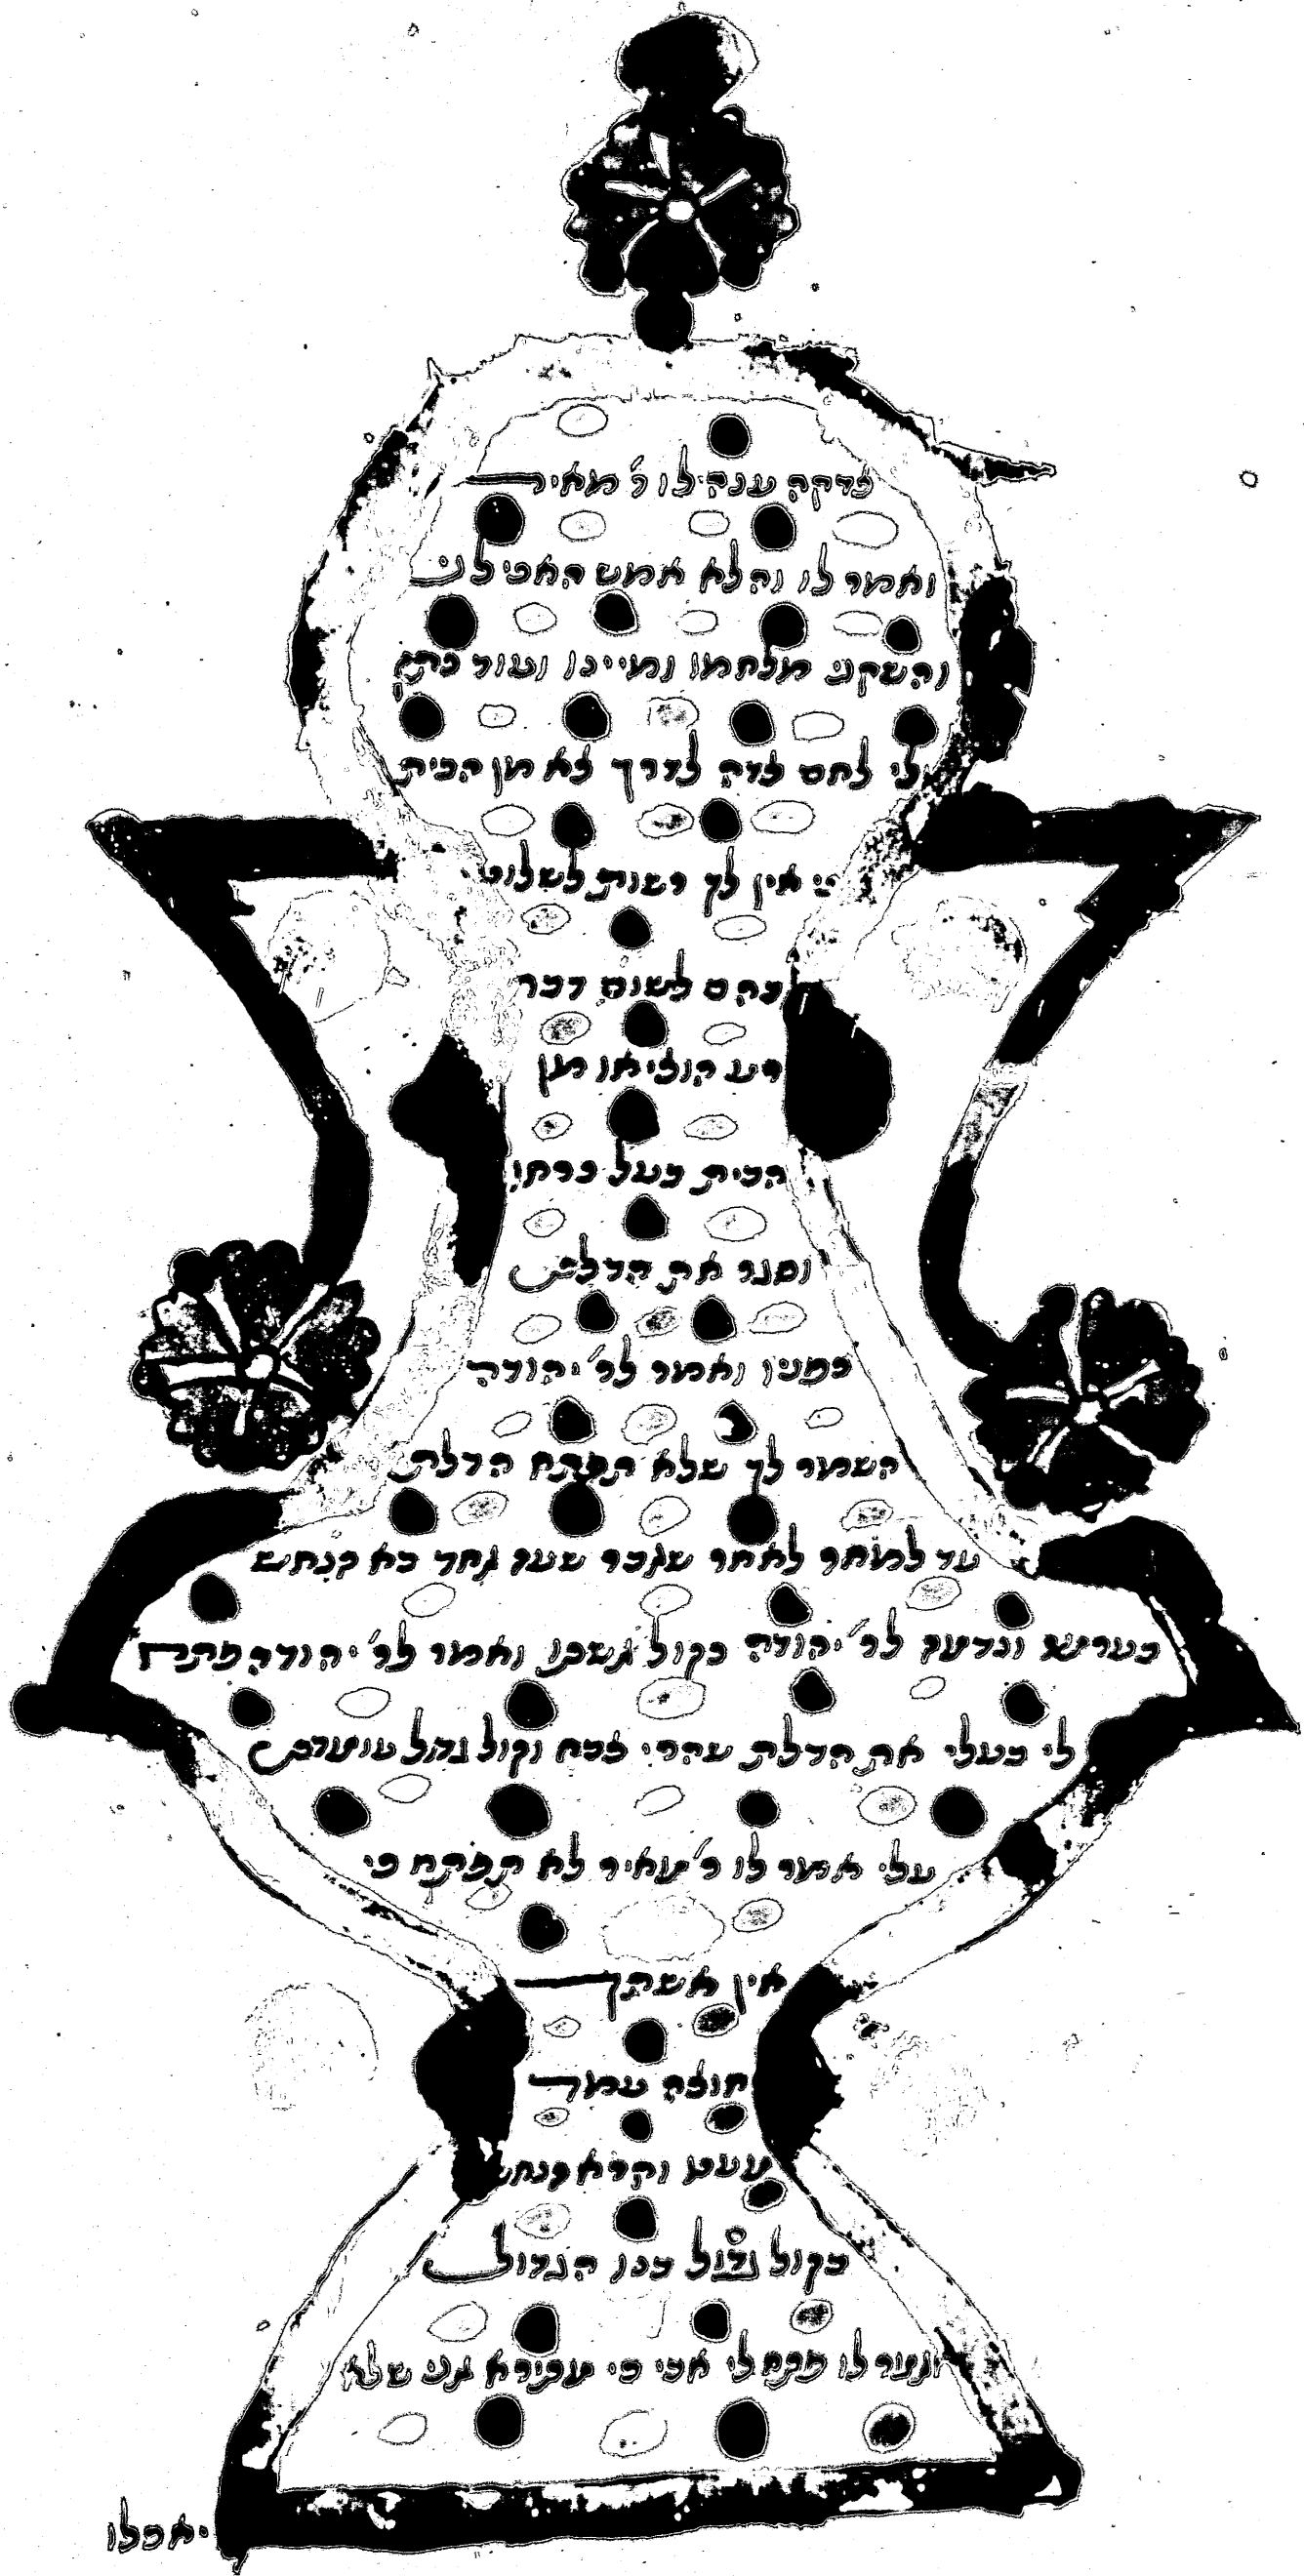 צדקה ענה לו ר' מאיר
ואמר לו והלא אמש האכילני
והשקני מלחמו ומיינו ועוד נתן
לי לחם צדה לדרך צא מן הבית
כי אין לך רשות לשלוט
בהם לשום דבר
רע הוציאו מן
הבית בעל כרחו
וסגר את הדלת
בפניו ואמר לר' יהודה
השמר לך שלא תפתח הדלת
עד למחר לאחר שעבר שעה אחד בא הנחש
לר' יהודה בקול אשתו ואמר לר' יהודה פתח
לי בעלי את הדלת שהרי צנה וקול גדול
עלי אמר לו ר' מאיר לא תפתח כי
אין אשתך
חוצה עמד
מעט וקרא הנחש
בקול גדול בנו הגדול
ואמר לו פתח לי אבי כי מתירא אני שלא
יאכלו